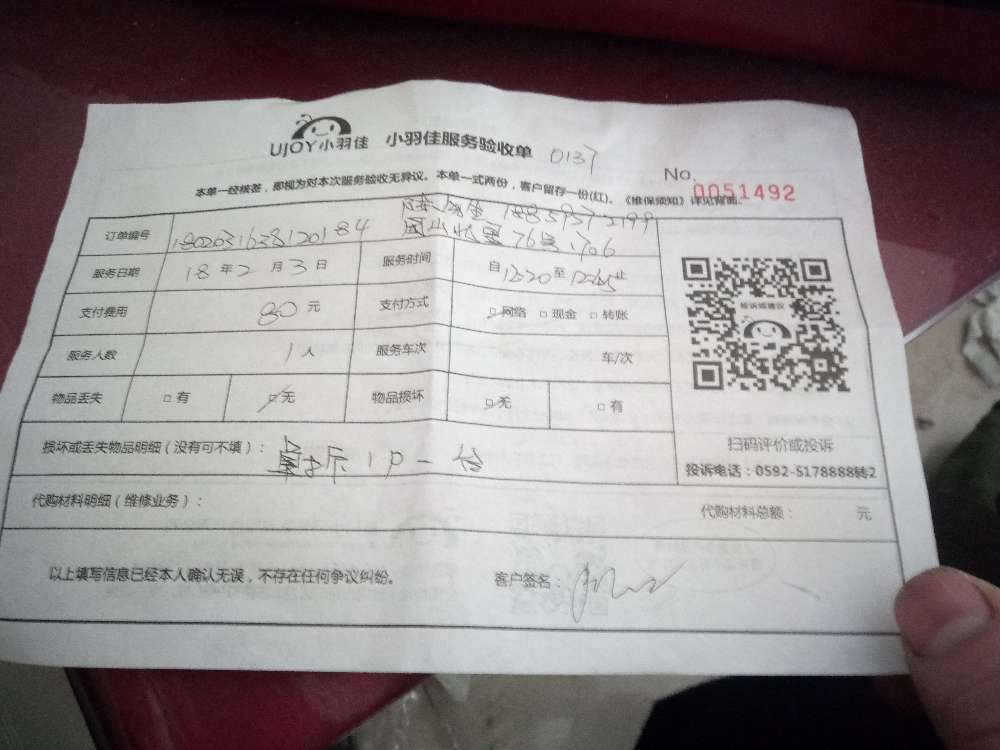 UJOY小羽佳 小羽佳服务验收单 0137
No. 0051492
本单一经核签，即视为对本次服务验收无异议。本单一式两份，客户留存一份(红)。《维保须知》详见背面。
订单编号
76号1706
服务日期 18年2月3日 服务时间 自12:20至12:45止
支付费用 80元 支付方式 □网络 □现金 □转账
服务人数 1人 服务车次 车/次
物品丢失 □有 □无 物品损坏 □无 □有
投诉或建议
扫码评价或投诉
投诉电话：0592-5178888转2
损坏或丢失物品明细（没有可不填）： 1P一台
代购材料明细（维修业务）： 代购材料总额： 元
以上填写信息已经本人确认无误，不存在任何争议纠纷。 客户签名：